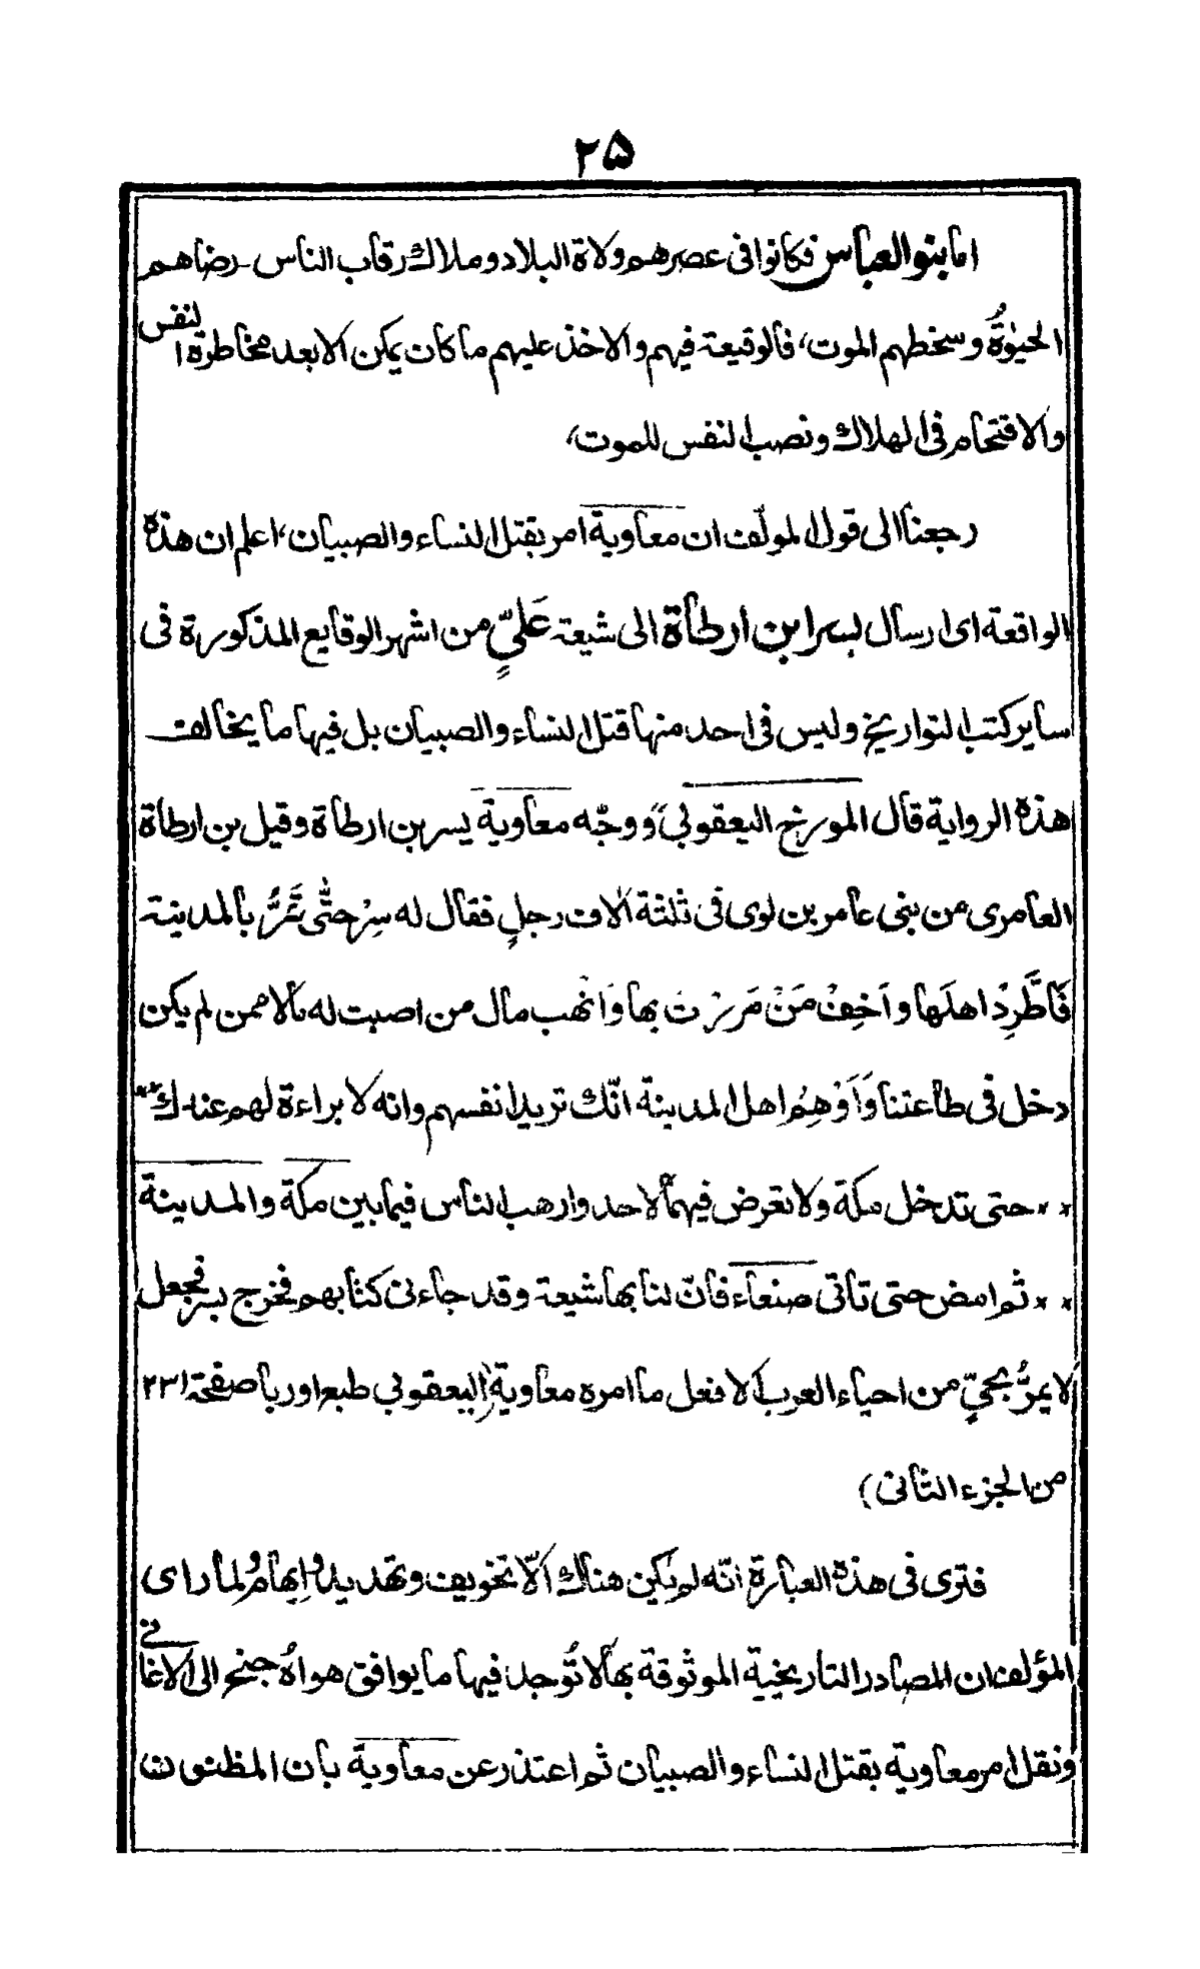 ٢٥
اما بنو العباس فكانوا فى عصرهم ولاة البلاد وملاك رقاب الناس رضاهم
الحيٰوةُ وسخطهم الموت، فالوقيعة فيهم والاخذ عليهم ما كان يمكن الا بعد مخاطرة النفس
والاقتحام فى الهلاك ونصب النفس للموت،
رجعنا الى قول المولّف ان معاوية امر بقتل النساء والصبيان، اعلم ان هذه
الواقعة اى ارسال بسر ابن ارطاة الى شيعة عَليٍّ من اشهر الوقايع المذكورة فى
ساير كتب التواريخ وليس فى احد منها قتل النساء والصبيان بل فيها ما يخالف
هذه الرواية قال المورخ اليعقوبي "ووجّه معاوية بسر بن ارطاة وقيل بن ارطاة
العامرى من بنى عامر بن لوى فى ثلثة الاف رجلٍ فقال له سِرْ حتّٰى تَمُرَّ بالمدينة
فَاطَّرِدْ اهلَها واَخِفْ مَنْ مَررْتَ بها وَانْهب مال من اصبت له مالا ممن لم يكن
دخل فى طاعتنا وَاَوْهِمْ اهل المدينة انّك تريد انفسهم وانه لا براءة لهم عندك **
** حتى تدخل مكة ولا تعرض فيها لاحد وارهب الناس فيما بين مكة والمدينة
** ثم امض حتى تاتى صنعاء فانّ لنا بها شيعة وقد جاءنى كتابهم فخرج بسر فجعل
لا يمرُّ بحيٍّ من احياء العرب الا فعل ما امره معاوية (اليعقوبي طبع اوربا صفحة ٢٣١
من الجزء الثانى)
فترى فى هذه العبارة انّه لم يكن هناك الّا تخويف وتهديد وإيهامٌ ولما راى
المؤلف ان المصادر التاريخية الموثوقة بها لا تُوجد فيها ما يوافق هواهُ جنح الى الاغانى
ونقل امر معاوية بقتل النساء والصبيان ثم اعتذر عن معاوية بان المظنون